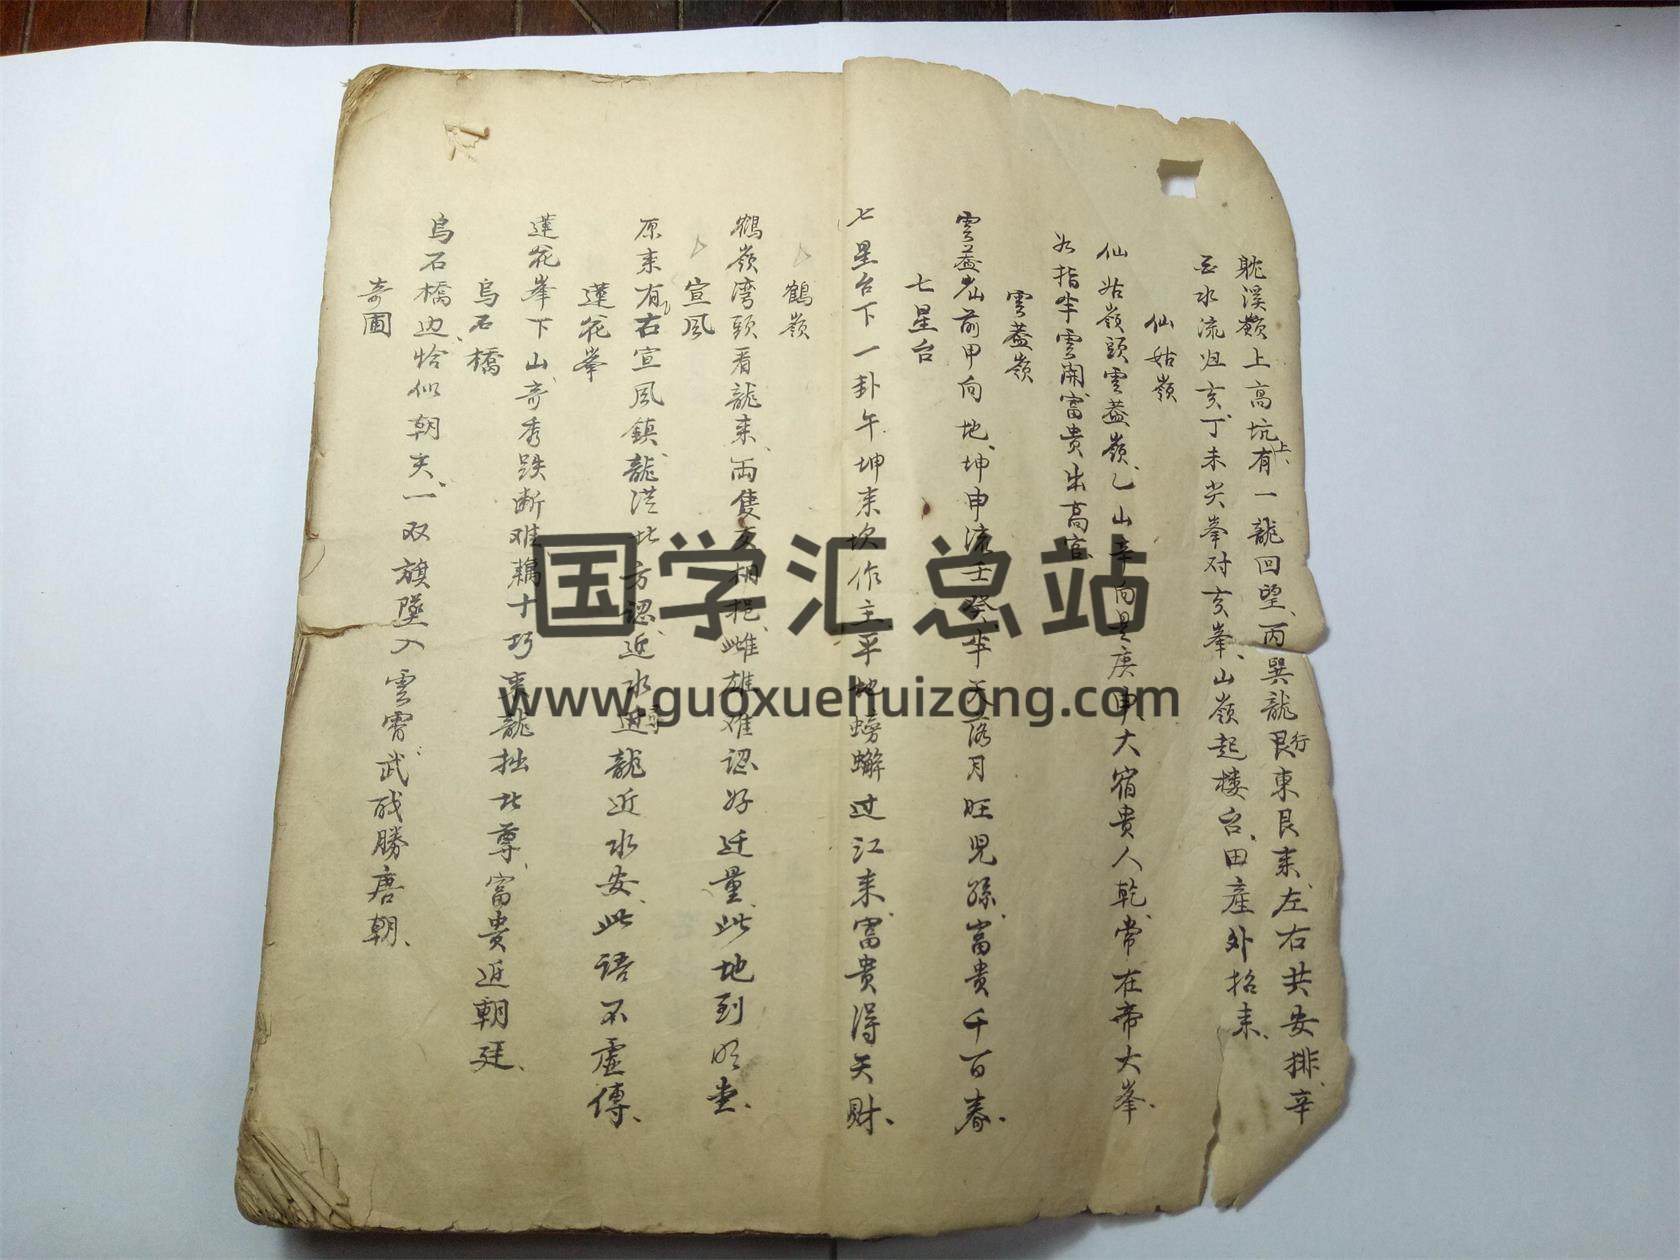 躭溪𡃤上高坑上有一龍回望、丙巽龍行艮東艮来、左右共安排、辛
水流归亥、丁未尖峯对亥峯、山嶺起楼台、田產外招来、
仙姑嶺
仙姑嶺頭雲蓋嶺、乙山辛向是庚申、大宿貴人乾、常在帝大峯、
指半雲開富貴出高官
雲蓋嶺
雲蓋山前甲向地、坤申流壬癸、半天落月旺児孫、富貴千百春、
七星台
七星台下一卦午坤来坎作主、平地螃蠏过江来、富貴得天財、
鶴嶺
鶴嶺湾頭看龍来、両隻交相抱、雌雄难認好迁量、此地到明堂、
宣風
原来有右宣風鎮、龍洪北方認近水、迎龍近水安、此語不虛傳、
蓮花峯
蓮花峯下山奇秀、跌断难藕十巧来龍拙北尊、富貴近朝廷、
烏石橋
烏石橋边、恰似朝天、一双旗墜入雲霄、武職勝唐朝、
奇圃
国学汇总站
www.guoxuehuizong.com